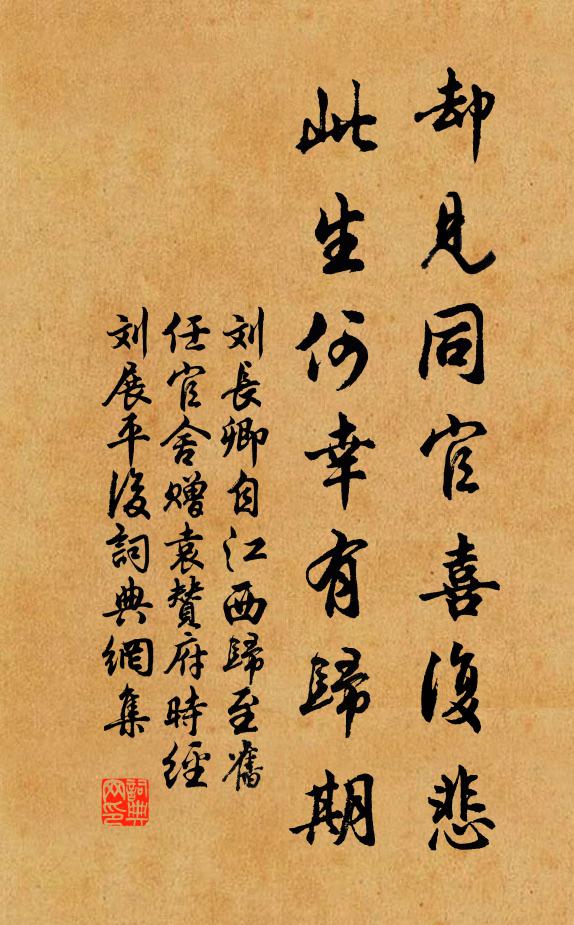 却見同官喜復悲
此生何幸有歸期
刘長卿自江西歸至舊
任官舍贈袁賛府時經
刘展平後詞典網集
詞典
网印